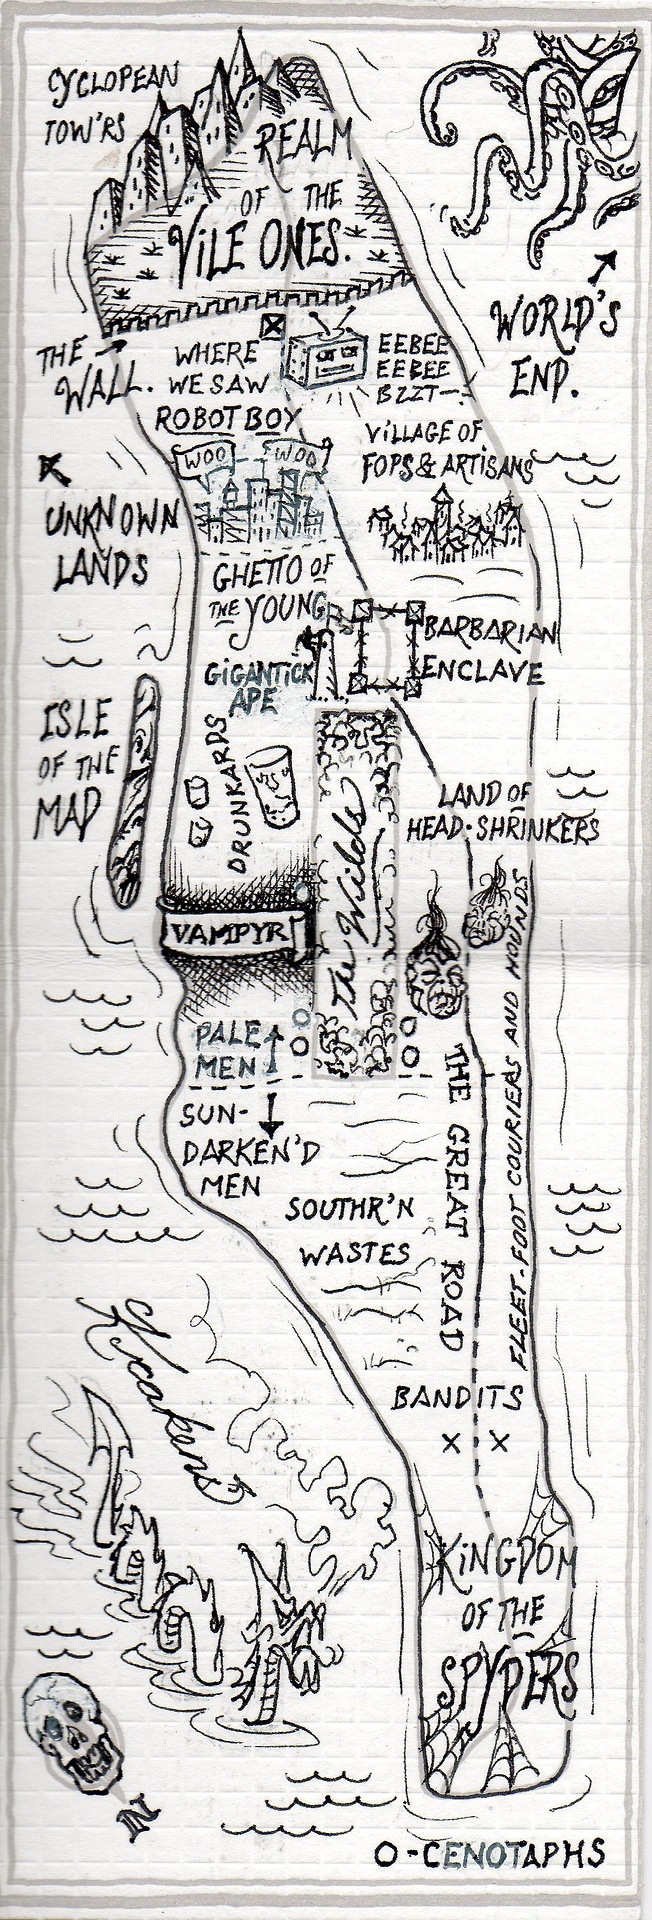 CYCLOPEAN
TOW'RS
REALM
OF THE
VILE ONES.
WORLD'S
END.
THE
WALL.
WHERE
WE SAW
ROBOT BOY
EEBEE
EEBEE
BZZT—
WOO
WOO
VILLAGE OF
FOPS & ARTISANS
UNKNOWN
LANDS
GHETTO OF
THE YOUNG
BARBARIAN
ENCLAVE
GIGANTICK
APE
ISLE
OF THE
MAD
DRUNKARDS
The Wilds
LAND OF
HEAD-SHRINKERS
VAMPYR
PALE
MEN
SUN-
DARKEN'D
MEN
THE GREAT ROAD
FLEET-FOOT COURIERS AND HOUNDS
SOUTHR'N
WASTES
BANDITS
X X
Krakens
KINGDOM
OF THE
SPYDERS
N
O-CENOTAPHS